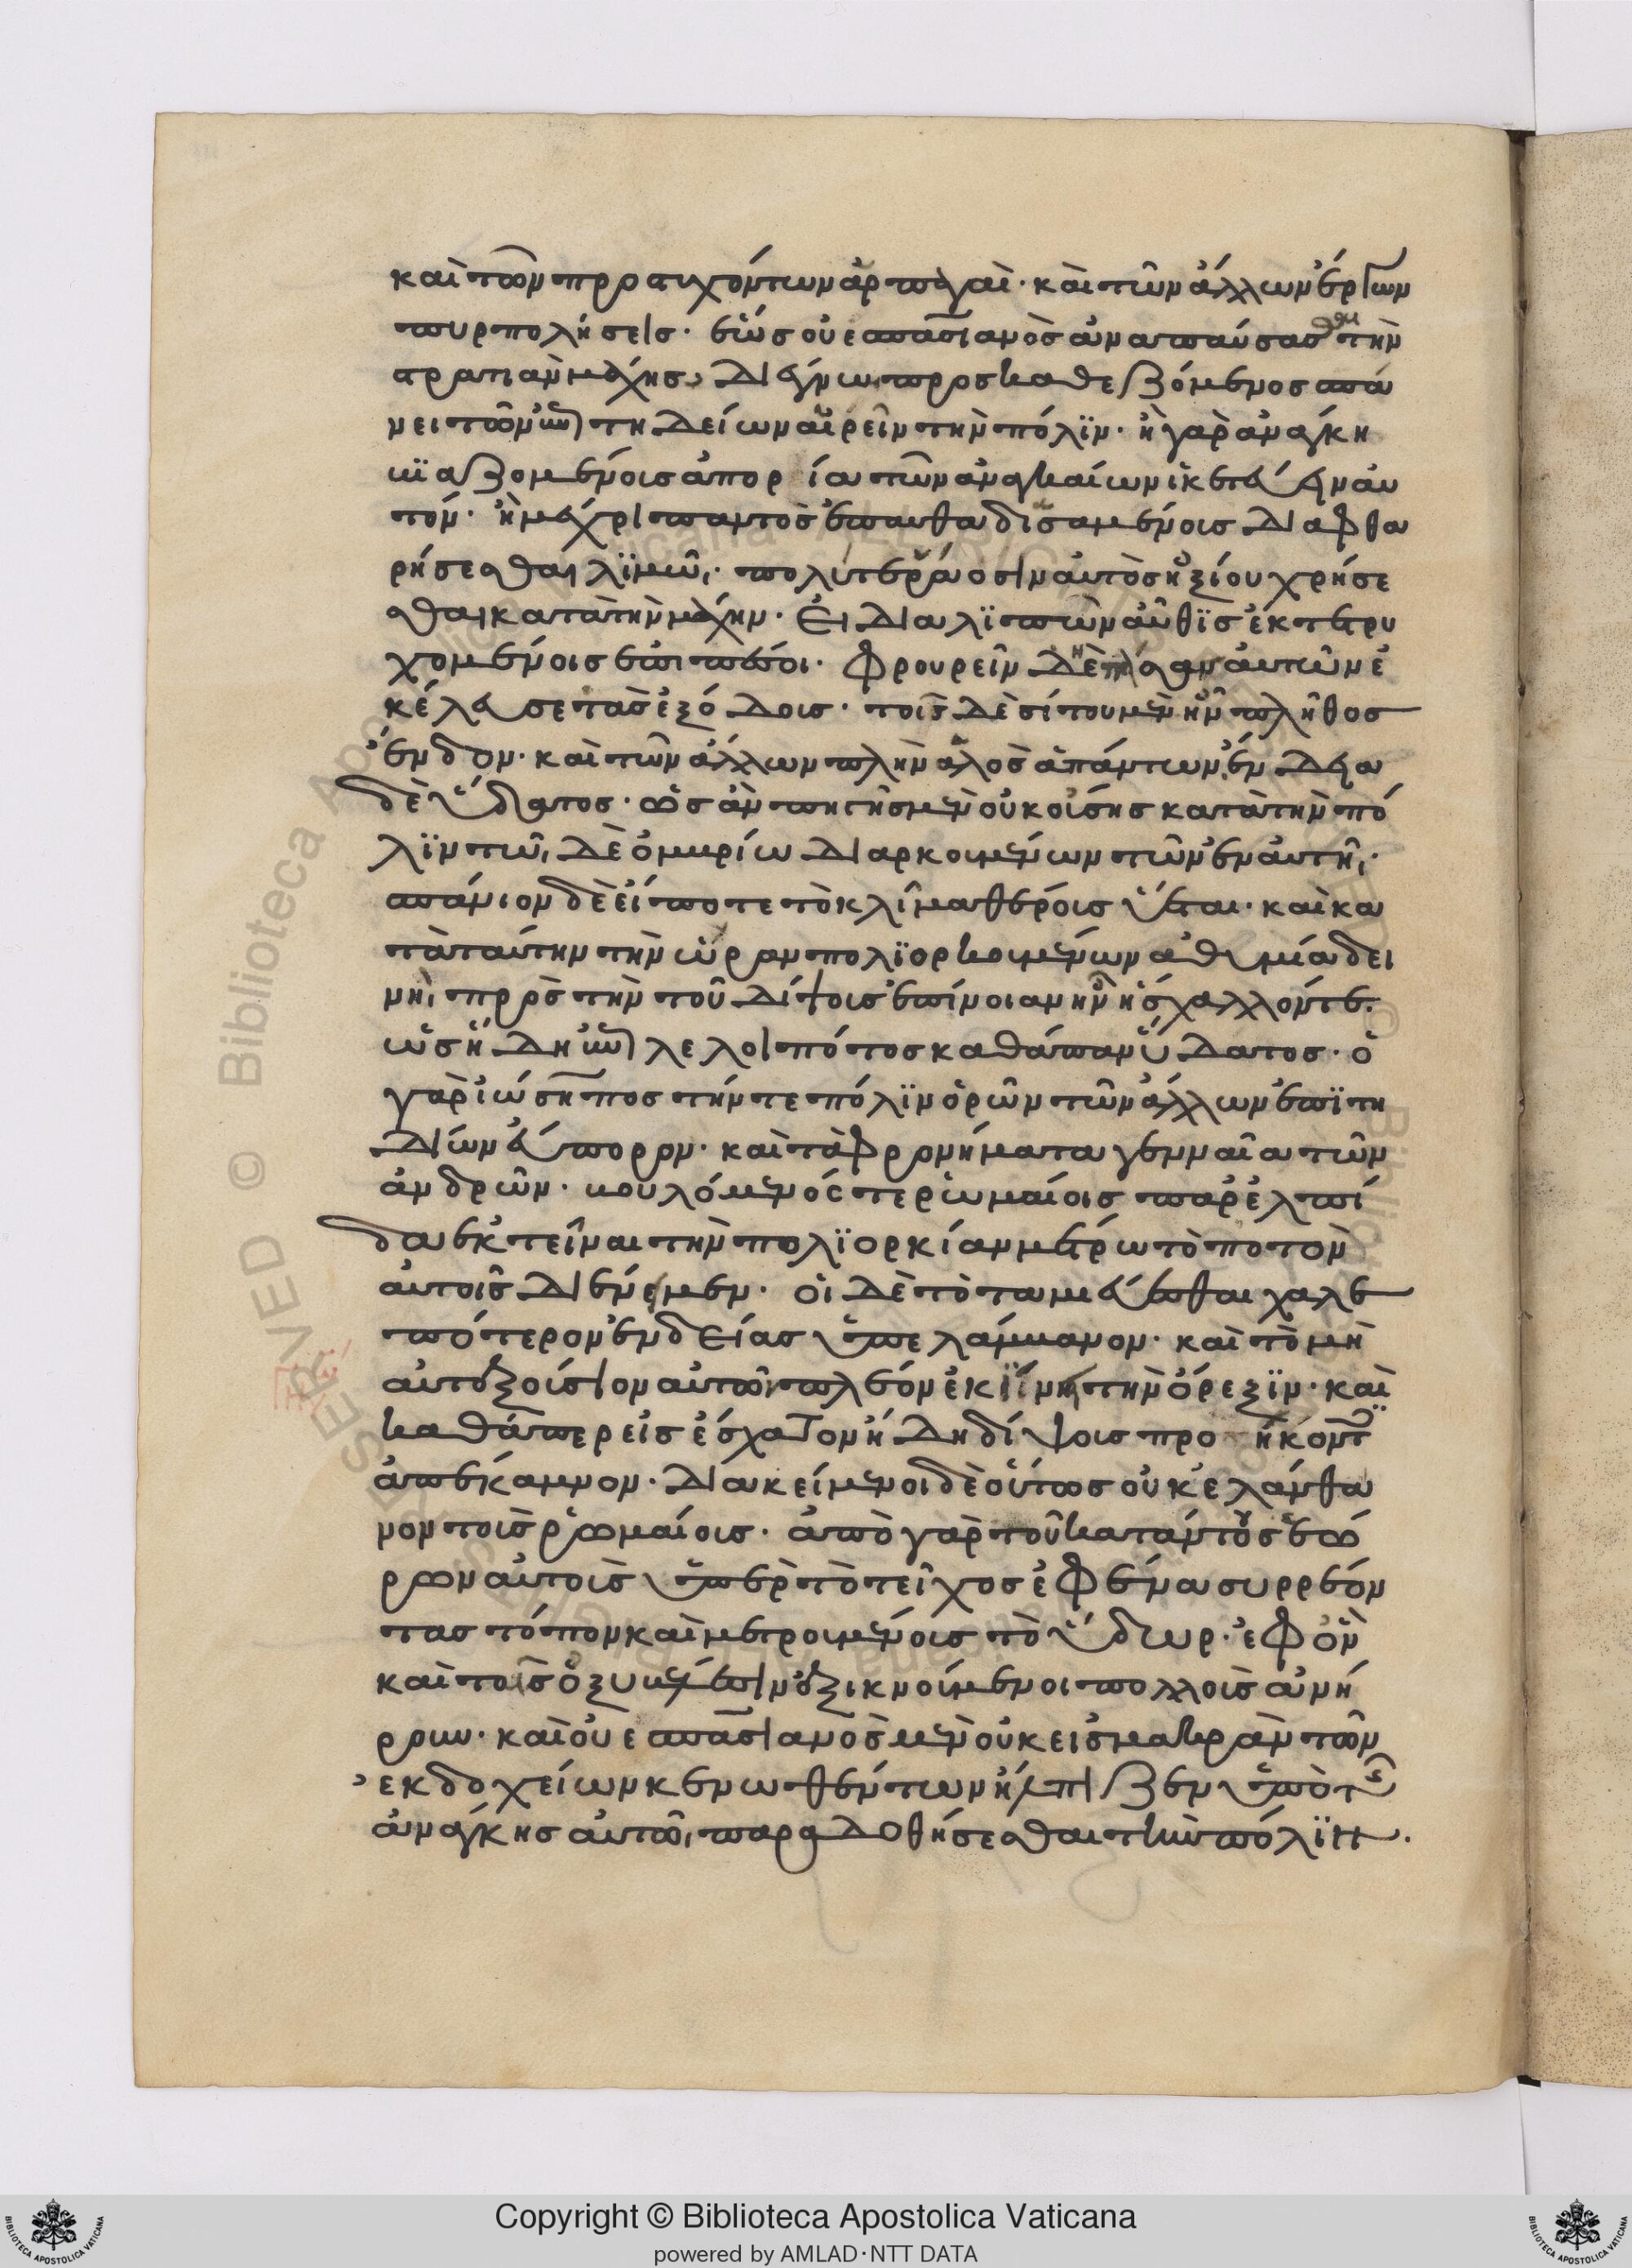 καὶ τῶν προστυχόντων ἁρπαγαὶ· καὶ τῶν ἄλλων ἔργων
πυρπολήσεις· ἕως οὐεσπασιανὸς ἀναπαύσασθαι τὴν
στρατιὰν μάχης, διέγνω προσκαθεζόμενος σπά
νει τῶν ἐπιτηδείων αἱρεῖν τὴν πόλϊν· ἢ γὰρ ἀνάγκη
βϊαζομένους ἀπορία τῶν ἀναγκαίων ἱκετεύειν αὐ
τόν· ἢ μέχρι παντὸς ἐπαυθαδισαμένους διαφθα
ρήσεσθαι λϊμῶι· πολύ τε ῥάοσιν αὐτὸς ἠξίου χρήσε
σθαι κατὰ τὴν μάχην· εἰ διαλϊπὼν αὖθϊς ἐκτετρυ
χομένους ἐπιπέσοι· φρουρεῖν δὲ πάσας αὐτῶν ἐ
κέλευσε τὰς ἐξόδους· τοῖς δὲ σίτου μὲν ἦν πλῆθος
ἔνδον· καὶ τῶν ἄλλων πλὴν ἁλὸς ἁπάντων, ἔνδεια
δὲ ὕδατος· ὡς ἂν πηγῆς μὲν οὐκ οὔσης κατὰ τὴν πό
λϊν τῶι δὲ ὀμβρίω διαρκουμένων τῶν ἐν αὐτῆι·
σπάνιον δὲ εἴ ποτε τὸ κλῖμα θέρους ὕεται· καὶ κα
τὰ ταύτην τὴν ὥραν πολϊορκουμένων ἀθυμία δει
νὴ, πρὸς τὴν τοῦ δίψους ἐπίνοιαν ἦν ἤσχαλλόν τε.
ὡς ἤδη ἐπιλελοιπότος καθάπαν ὕδατος· ὁ
γὰρ ἰώσηπος τήν τε πόλϊν ὁρῶν τῶν ἄλλων ἐπϊτη
δίων εὔπορον· καὶ τὰ φρονήματα γενναῖα τῶν
ἀνδρῶν· βουλόμενός τε ῥωμαίοις παρ' ἐλπί
δα ἐκτεῖναι τὴν πολϊορκίαν μέτρω τὸ ποτὸν
αὐτοῖς διένειμεν· οἱ δὲ τὸ ταμιεύεσθαι χαλε
πώτερον ἐνδείας ὑπελάμβανον· καὶ τὸ μὴ
αὐτεξούσιον αὐτῶν πλέον ἐκϊίνει τὴν ὄρεξϊν· καὶ
καθάπερ εἰς ἔσχατον ἤδη δίψους προήκοντες
ἀπέκαμνον· διακείμενοι δὲ οὕτως οὐκ ἐλάνθα
νον τοὺς ῥωμαίους· ἀπὸ γὰρ τοῦ κατάντους ἑώ
ρων αὐτοὺς ὑπὲρ τὸ τεῖχος ἐφ' ἕνα συρρέον
τας τόπον καὶ μετρουμένους τὸ ὕδωρ· ἐφ' ὃν
καὶ τοῖς ὀξυβέλεσιν ἐξικνούμενοι πολλοὺς ἀνή
ρουν· καὶ οὐεσπασιανὸς μὲν οὐκ εἰς μακρὰν τῶν
ἐκδοχείων κενωθέντων ἤλπιζεν ὑπὸ τῆς
ἀνάγκης αὐτῶι παραδοθήσεσθαι τὴν πόλϊν.
Copyright © Biblioteca Apostolica Vaticana
powered by AMLAD·NTT DATA